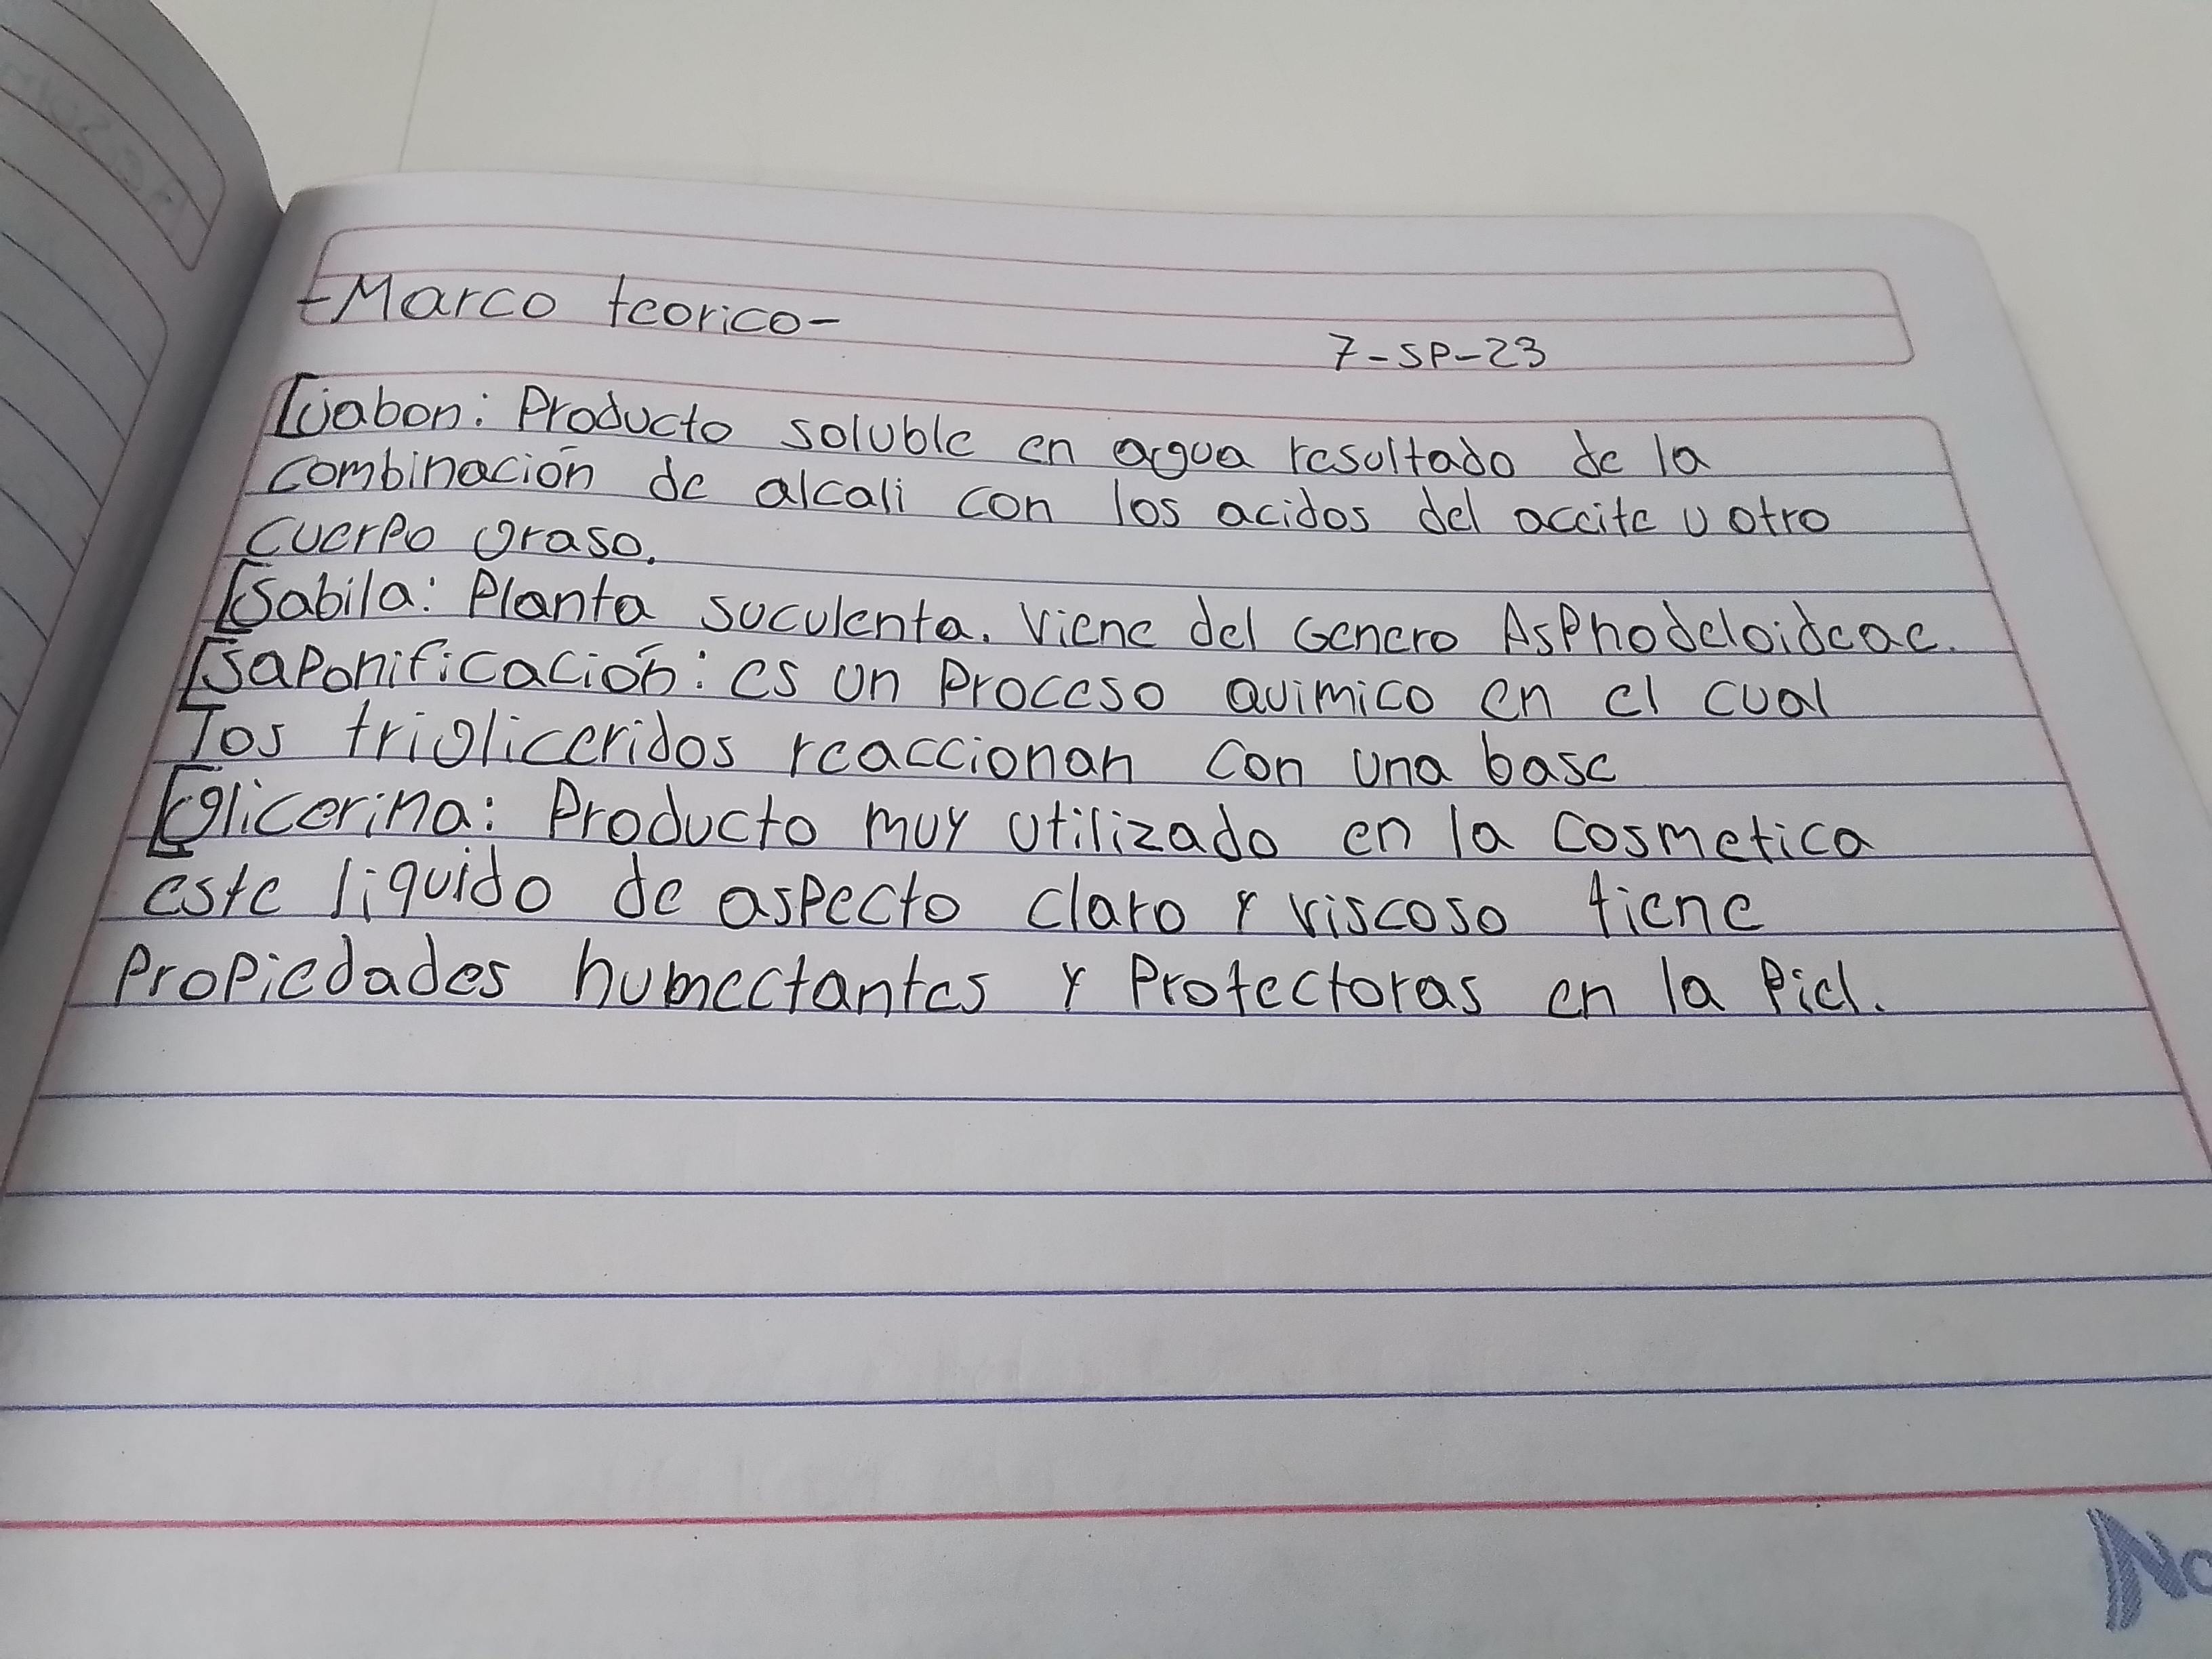 -Marco teorico-
7-SP-23
[Jabon: Producto soluble en agua resultado de la
combinación de alcali con los acidos del aceite u otro
cuerpo graso.
[Sabila: Planta suculenta. Viene del Genero Asphodeloideae.
[Saponificación: es un Proceso quimico en el cual
los trigliceridos reaccionan con una base
[Glicerina: Producto muy utilizado en la cosmetica
este liquido de aspecto claro y viscoso tiene
Propiedades humectantes y Protectoras en la Piel.